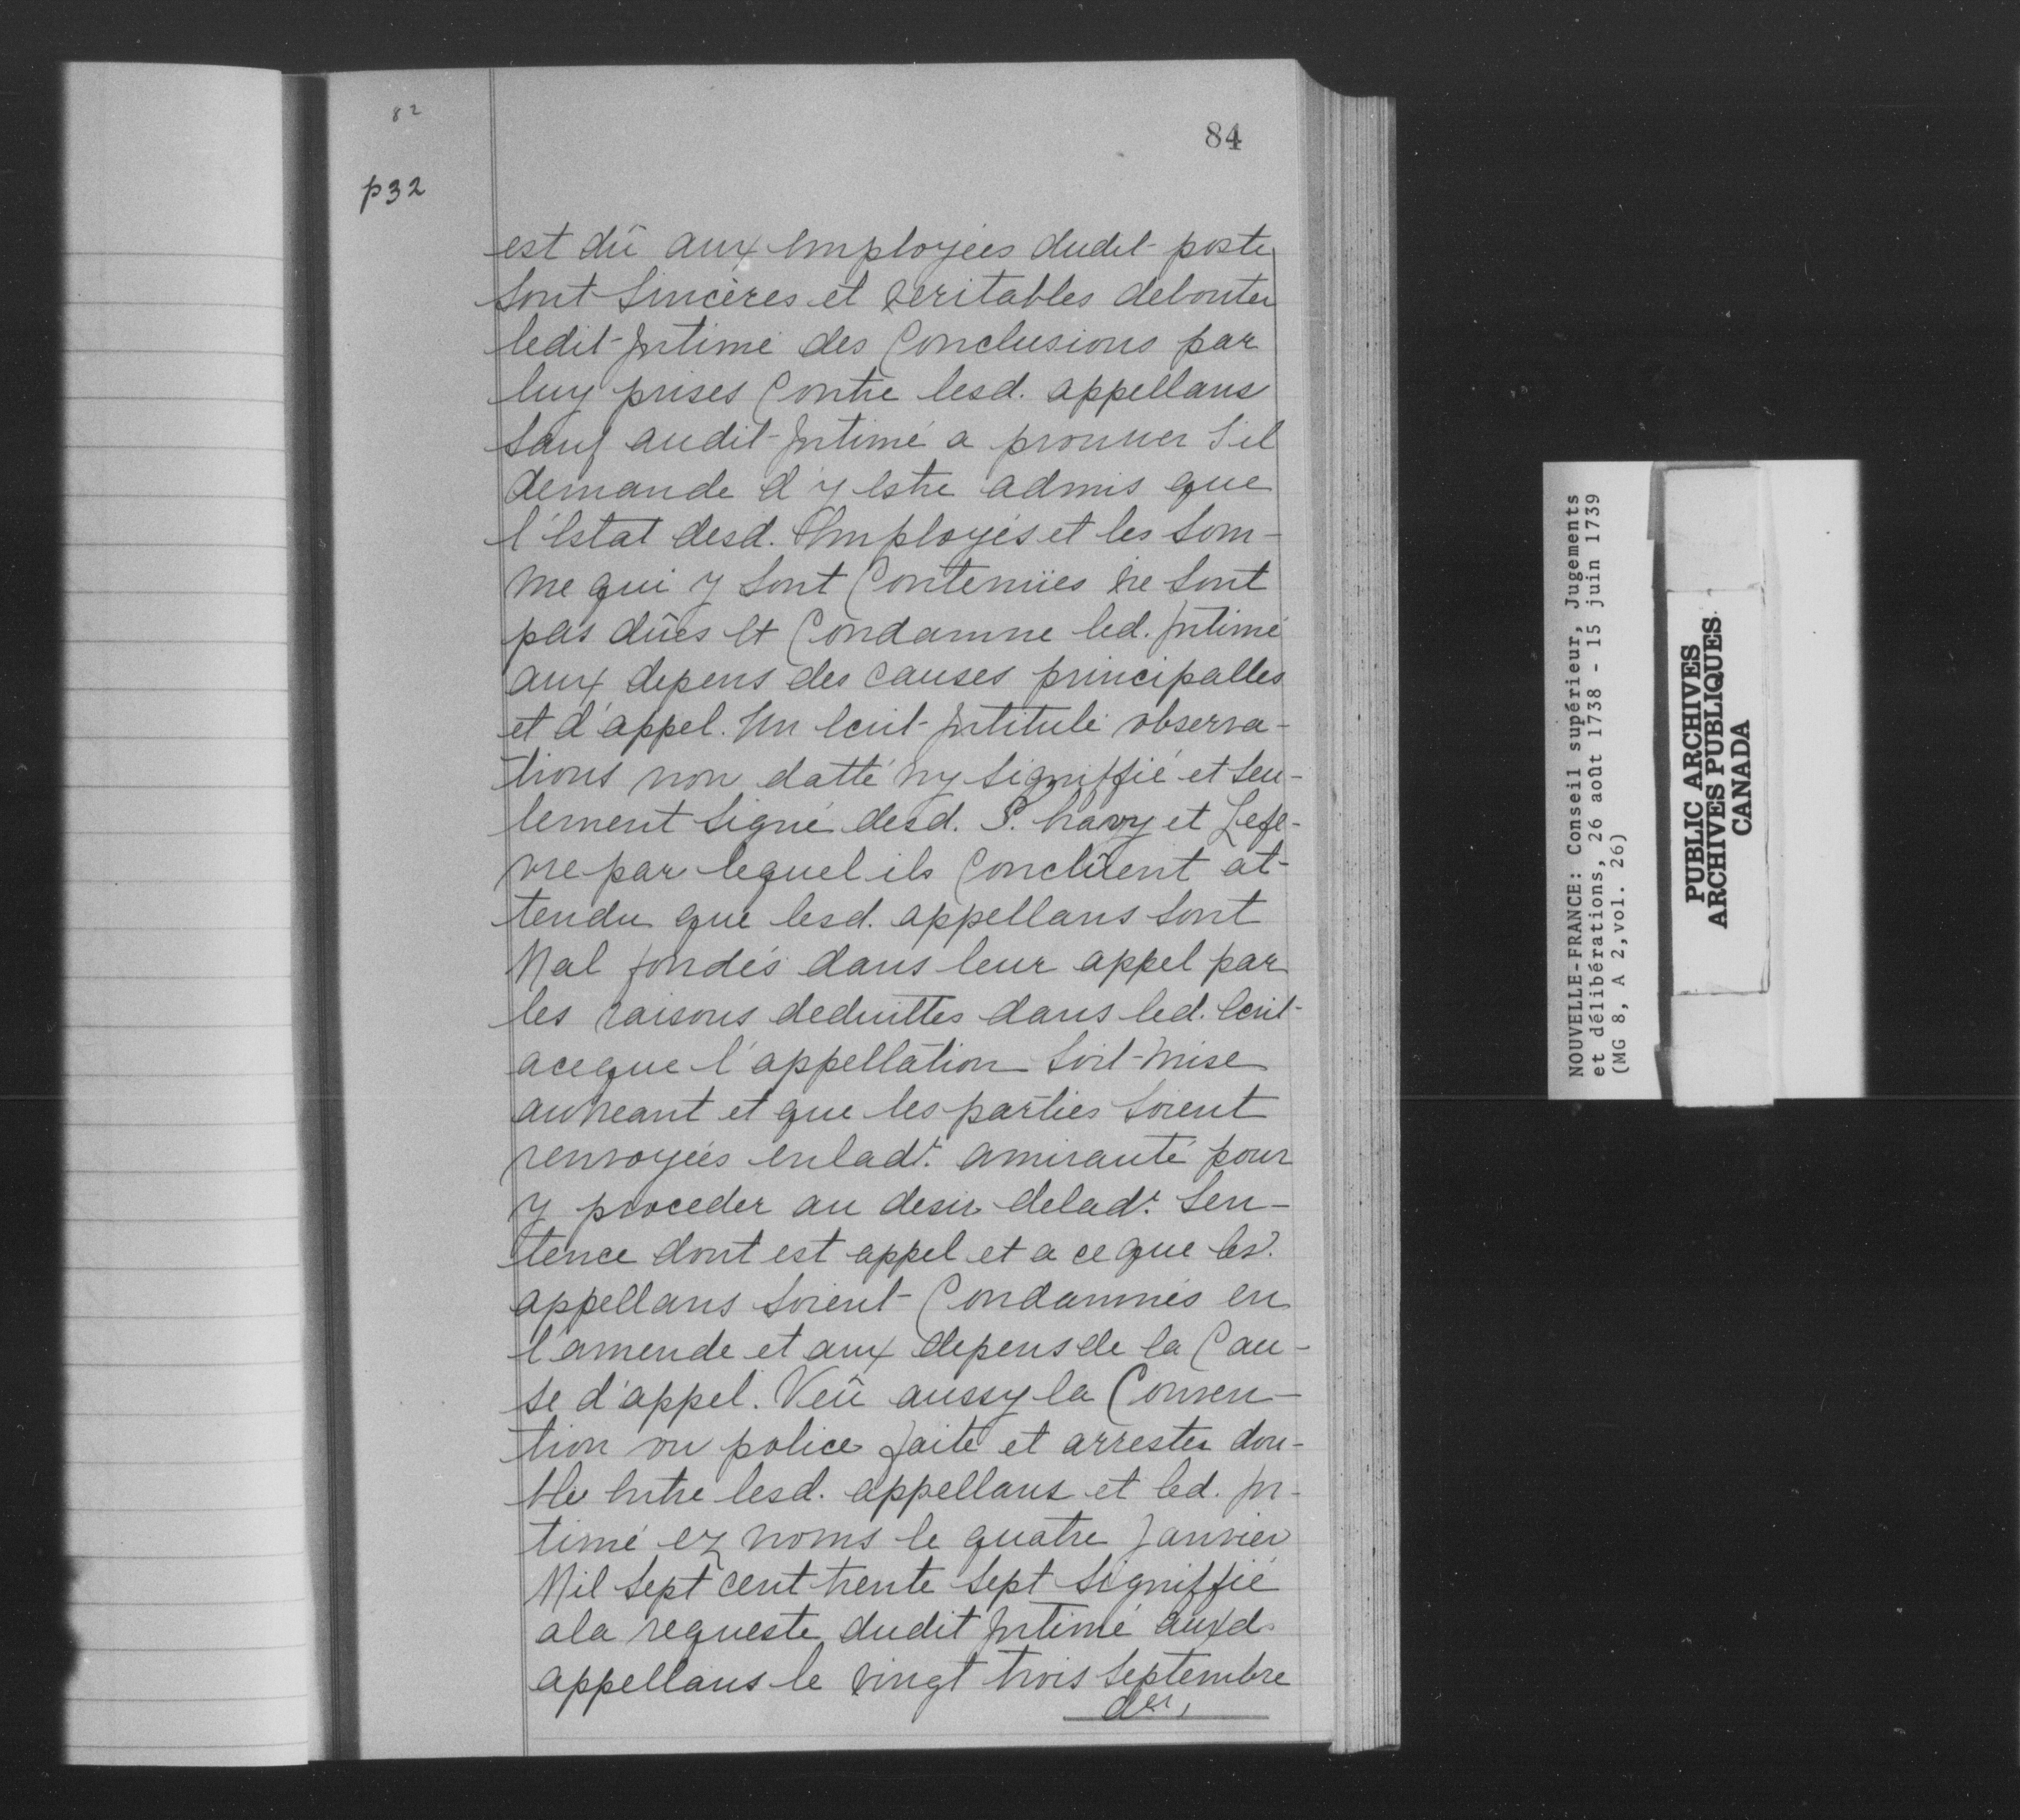 82
84
p32
est dû aux Employées dudit poste
sont Sincères et veritables debouter
ledit Intimé des Conclusions par
luy prises Contre lesd. appellans
sauf audit Intimé a prouver s'il
demande d'y estre admis que
l'Estat desd. Employés et les som-
me qui y sont Contenües ne sont
pas dûes et Condamne led. Intimé
aux depens des causes principalles
et d'appel. Un Ecrit Intitulé observa-
tions non datté ny signiffié et seu-
lement signé desd. S. havy et Lefe-
vre par lequel ils Concluent at-
tendu que lesd. appellans sont
Mal fondés dans leur appel par
les raisons deduittes dans led. Ecrit
aceque l'appellation soit mise
auneant et que les parties soient
renvoyées enladt. amirauté pour
y proceder au desir deladt. Sen-
tence dont est appel et a ce que lesd.
appellans soient Condamnés en
l'amende et aux depens de la Cau-
se d'appel. Veû aussy la Conven-
tion ou police faite et arrester dou-
ble Entre lesd. appellans et led. In-
timé ez noms le quatre Janvier
Mil Sept cent trente sept signiffié
ala requeste dudit Intimé auxd.
appellans le vingt trois septembre
der,
NOUVELLE-FRANCE: Conseil supérieur, Jugements
et délibérations, 26 août 1738 - 15 juin 1739
(MG 8, A 2,vol. 26)
PUBLIC ARCHIVES
ARCHIVES PUBLIQUES
CANADA